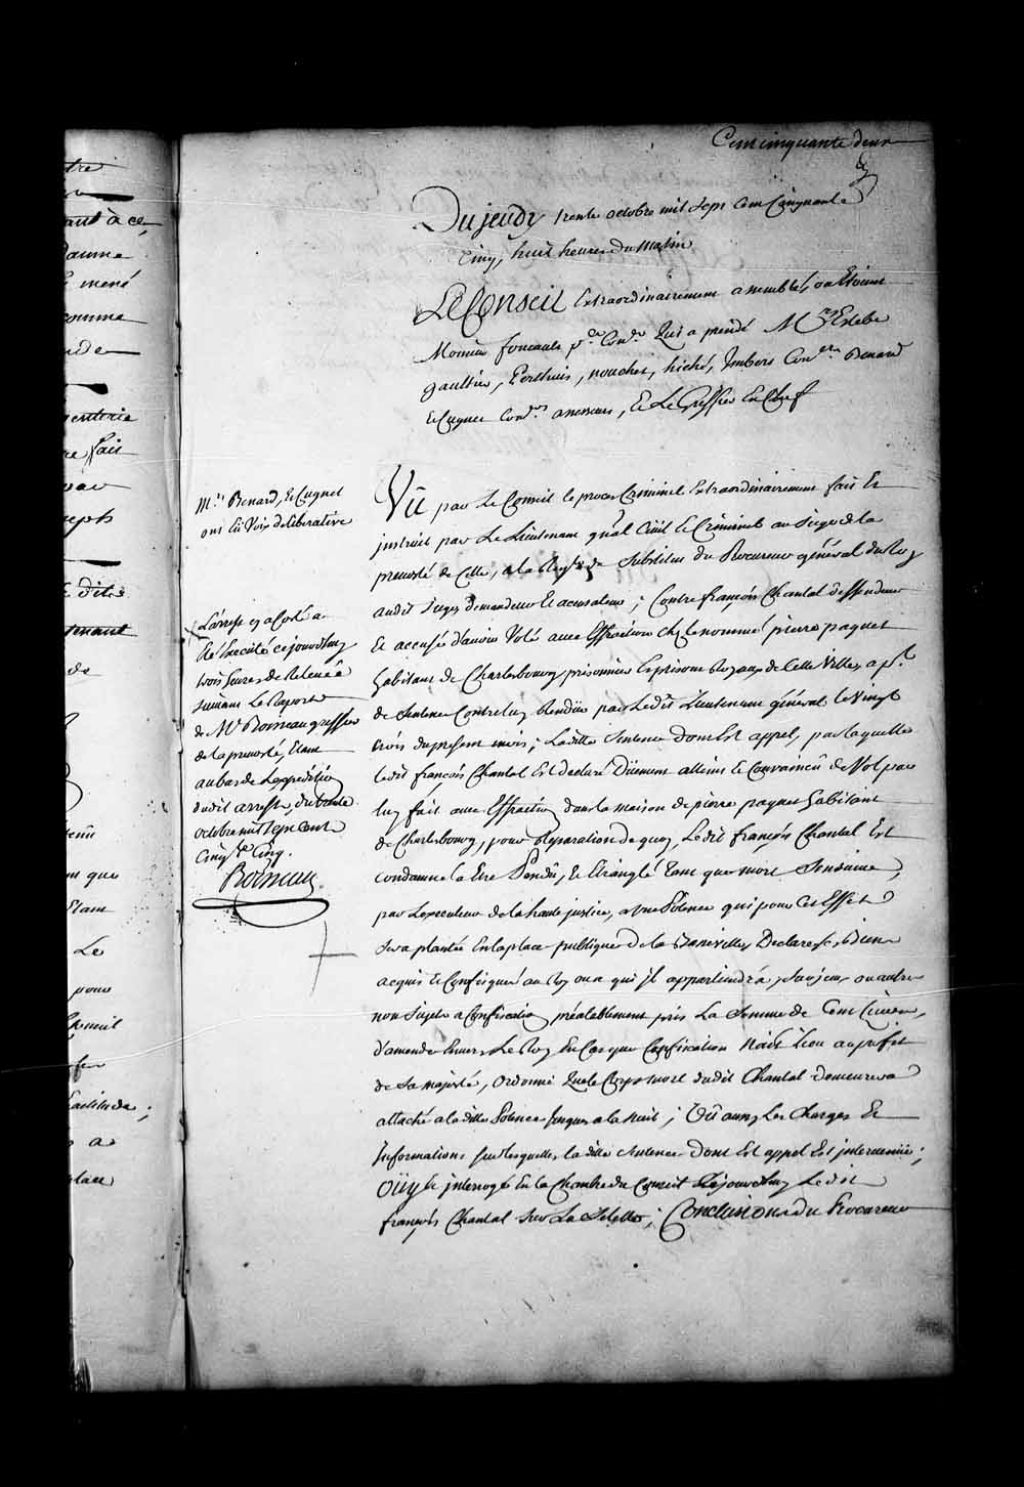 Cent cinquante deux
Du jeudy trente octobre mil sept Cent Cinquante
Cinq, huit heures du Matin
Le Conseil Extraordinairement assemblé, ou Etoient
Monsieur foucault p.er Con.er Qui a presidé M.rs Estebe
gaultier, Perthuis, nouchet, hiché, Imbert Con.ers Benard
et Cugnet Con.ers assesseurs, Et Le Greffier En Chef
M.rs Benard, et Cugnet
ont Eû Voix deliberative
Vû par Le Conseil le procès Criminel Extraordinairement fait Et
jnstruit par Le Lieutenant gñal Civil Et Criminel au Siege de la
prevosté de cette, a la Req.te du Substitut du Procureur général du Roy
audit Siege demandeur Et accusateur; Contre françois Chantal deffendeur
Et accusé d'avoir Volé avec Effraction chez le nommé pierre paquet
habitant de Charlesbourg, prisonnier Es prisons Royaux de Cette Ville, app.t
de Sentence Contre luy Rendüe par Ledit Lieutenant général le vingt
trois du present mois; Ladite Sentence dont Est appel, par laquelle
ledit françois Chantal Est declaré Düement atteint Et Convaincû de Vol par
luy fait avec Effraction dans la maison de pierre paquet habitant
de Charlesbourg, pour Reparation de quoy, Ledit françois Chantal Est
condamné a Etre Pendû, Et Etranglé tant que mort Sensuive,
par Lexecuteur de la haute justice, a une Potence qui pour Cet Effet
Sera plantée En la place publique de la Basseville, Declare Ses Biens
acquis Et Confisqués au Roy ou a qui jl appartiendra, Sur jceux ou autres
non Sujets a Confiscation, préalablement pris La Somme de Cent Livres
d'amende Envers Le Roy En Cas que Confiscation N'ait Lieu au profit
de Sa Majesté, ordonné Que le Corps mort dudit Chantal demeurera
attaché a ladite Potence jusques a la nuit; Vû aussy Les Charges Et
Informations Sur lesquelles la dite Sentence dont Est appel Est jntervenüe;
Oüy Et jnterrogé En la Chambre du Conseil Cejourdhuy Ledit
françois Chantal Sur La Selette; Conclusions du Procureur
L'arrest cy a Costé a
Eté Executé cejourdhuy
trois heures de Relevée
suivant Le Raport
de M.e Boisseau greffier
de la prevosté, Etant
au bas de Lexpedition
dudit arrest, du trente
octobre mil sept cent
Cinq.te Cinq.
Boisseau